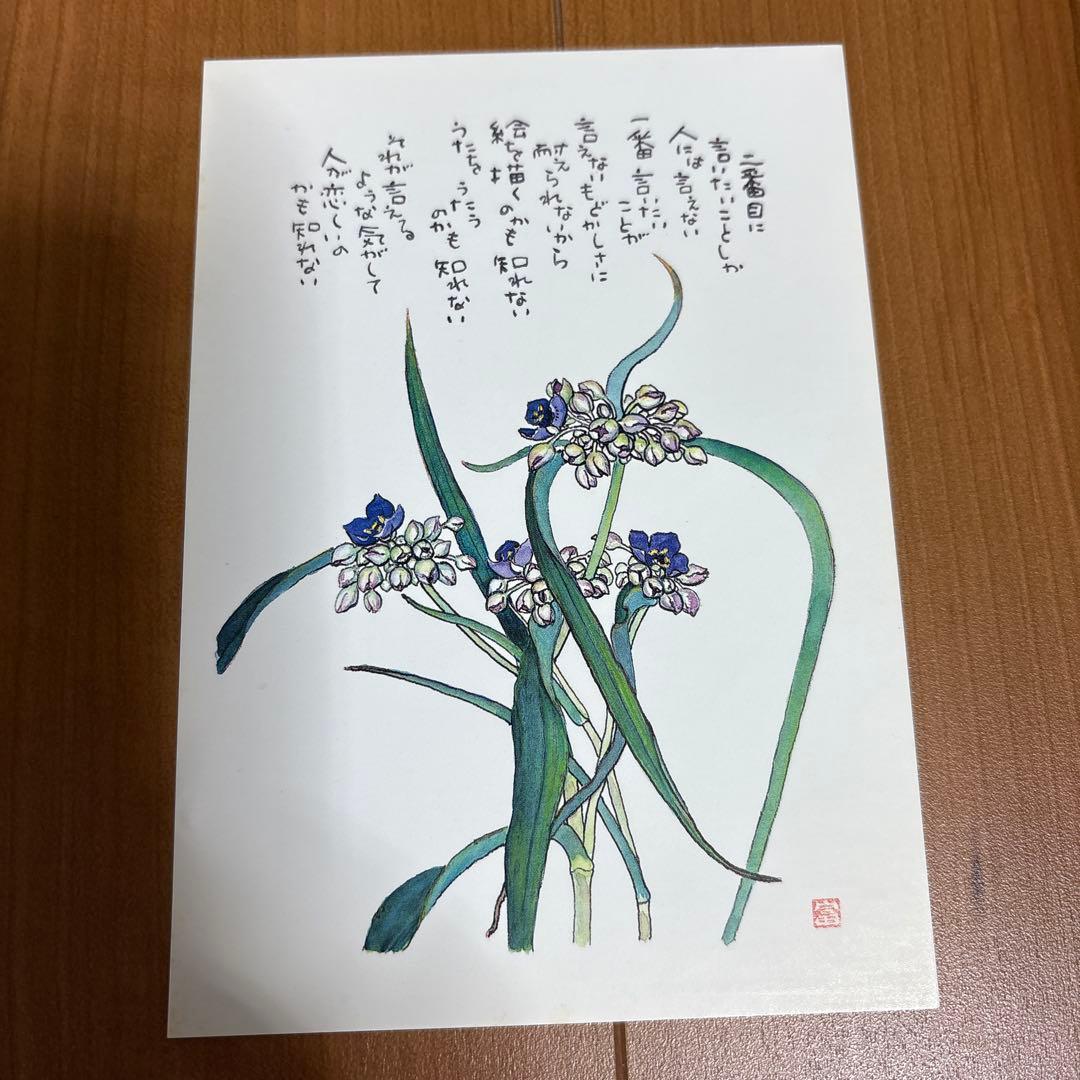 二番目に
言いたいことしか
人には言えない
一番言いたい
ことが
言えないもどかしさに
耐えられないから
絵を描くのかも知れない
うたをうたう
のかも知れない
それが言える
ような気がして
人が恋しいの
かも知れない